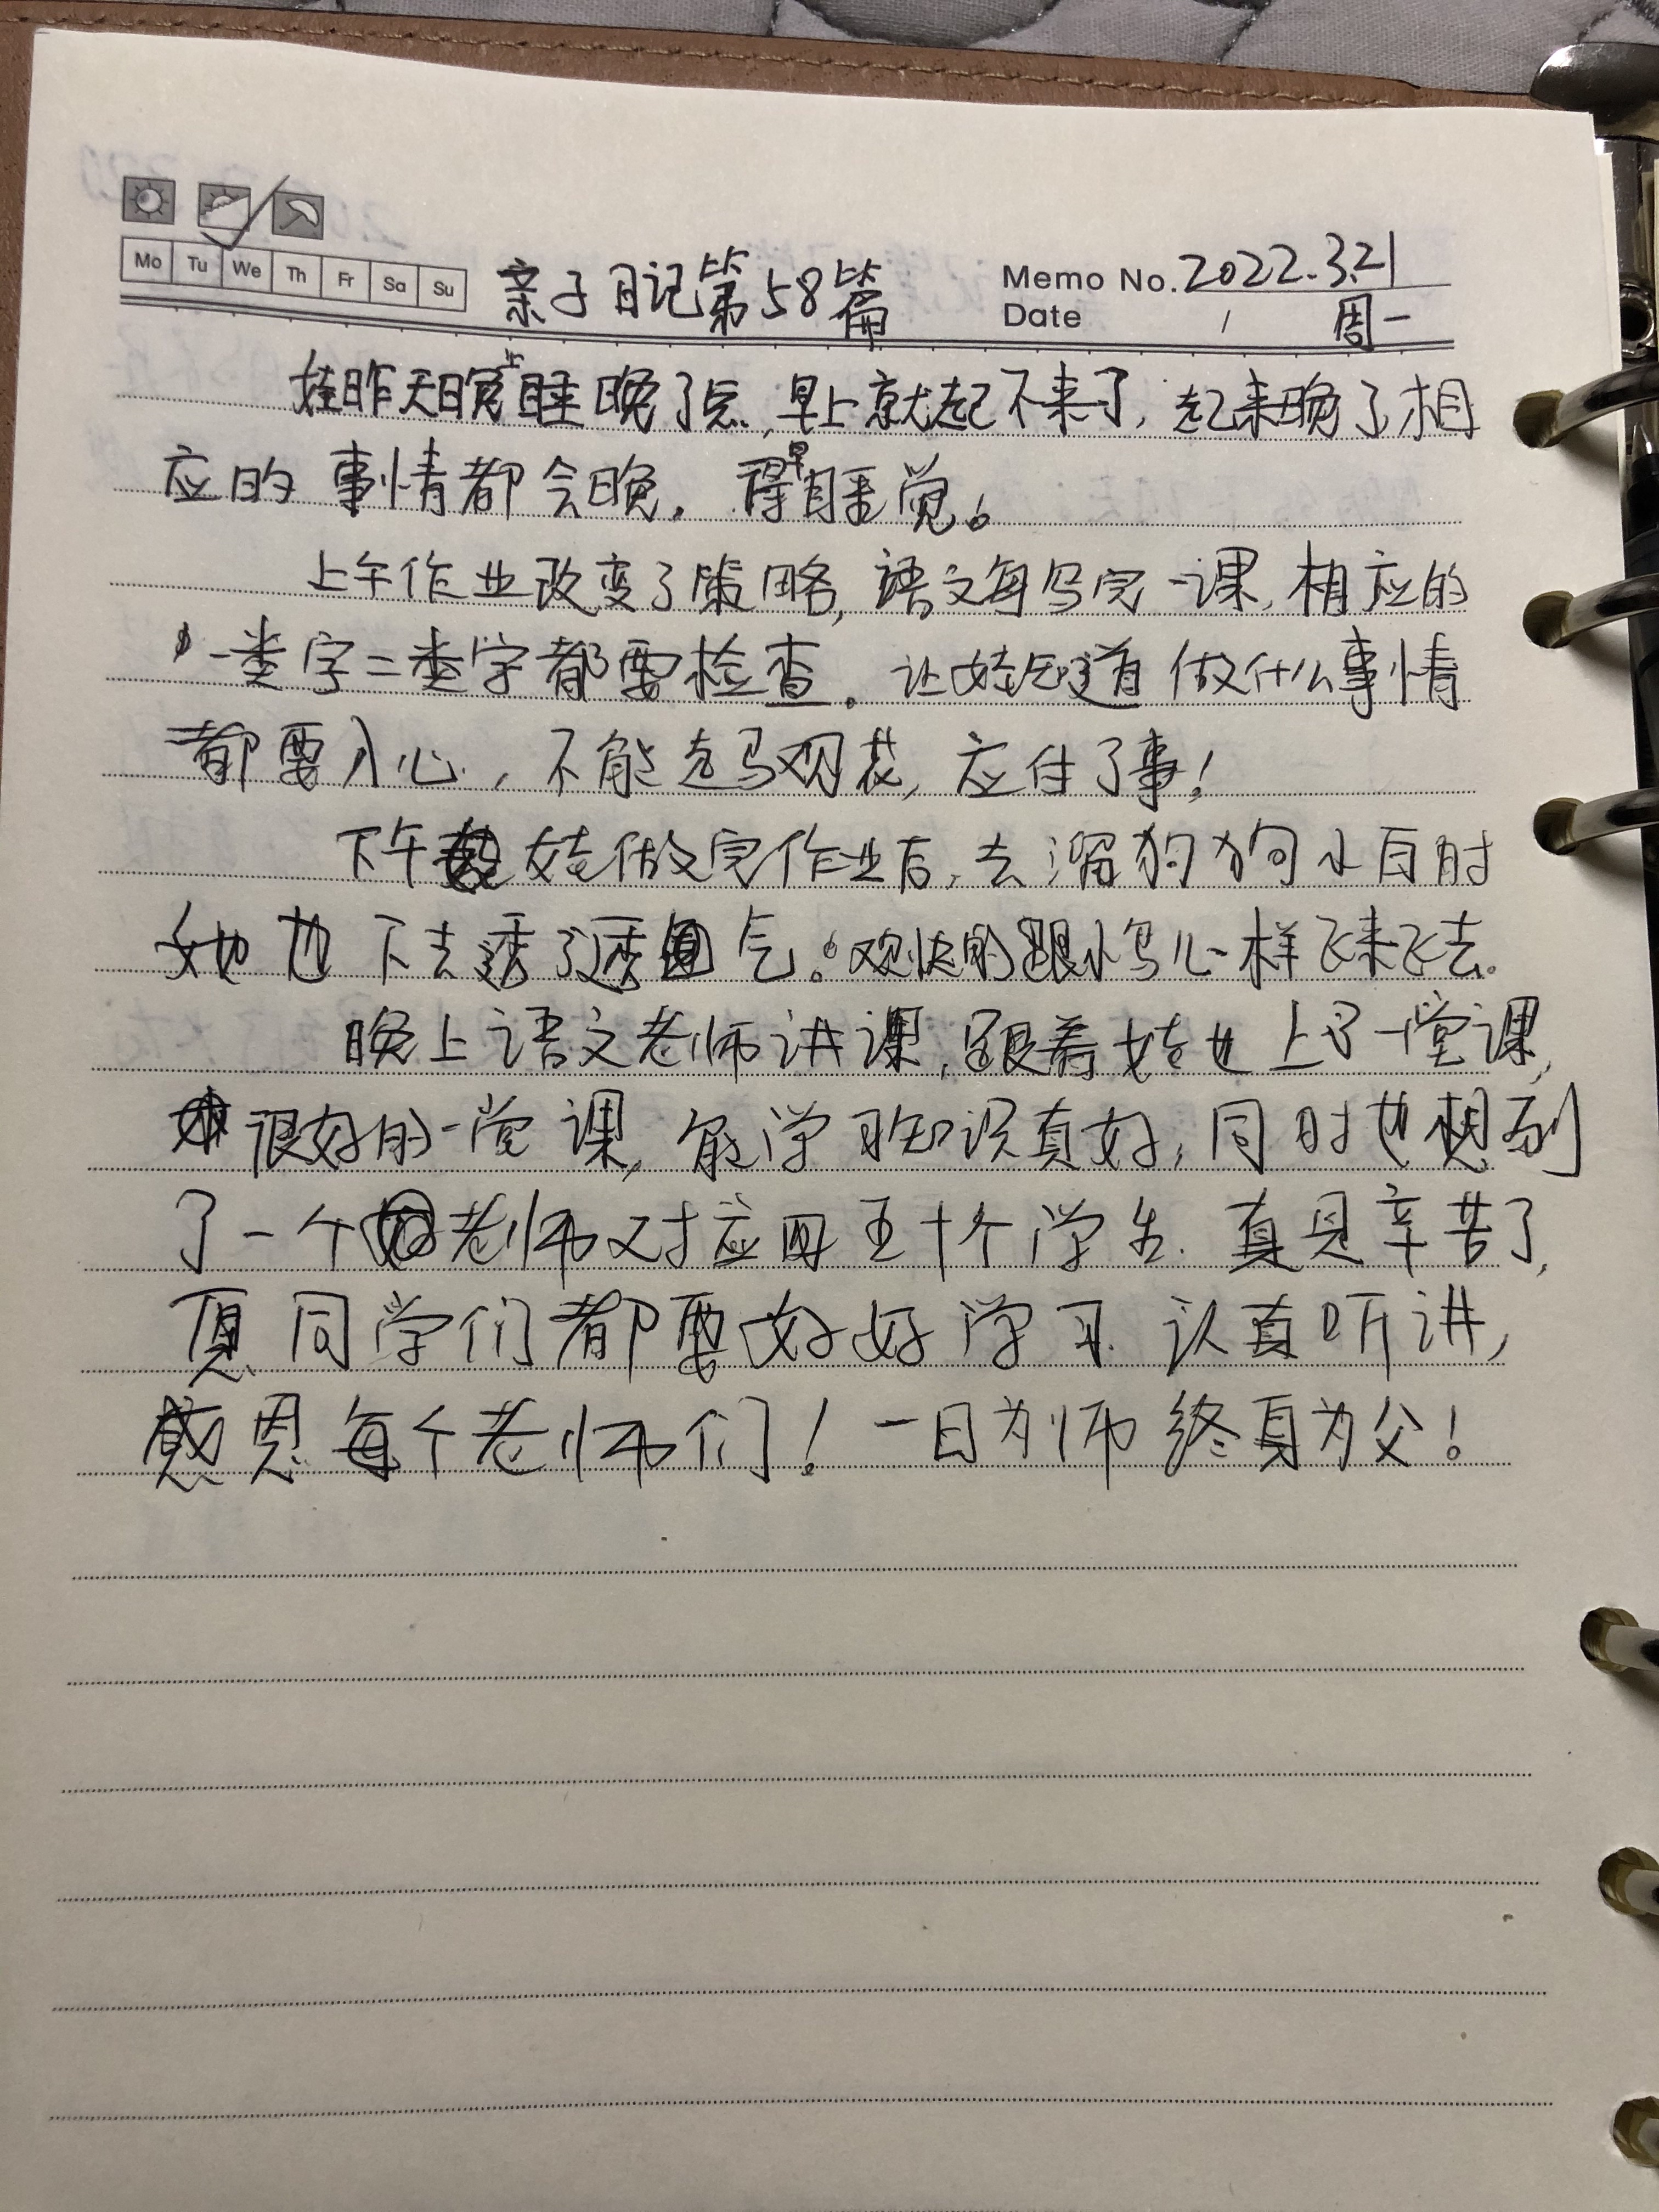 Mo Tu We Th Fr Sa Su
亲子日记第58篇
Memo No. 2022.3.21
Date / 周一
娃昨天晚上睡晚了点,早上就起不来了,起来晚了相
应的事情都会晚。得早睡觉。
上午作业改变了策略,语文每写完一课,相应的
一类字二类字都要检查。让娃知道做什么事情
都要入心,不能走马观花,应付了事!
下午娃做完作业后,去溜狗狗小白时
她也下去透了透气。欢快的跟小鸟儿一样飞来飞去。
晚上语文老师讲课,跟着娃也上了一堂课,
很好的一堂课,能学习知识真好,同时也想到
了一个老师对应四五十个学生.真是辛苦了,
愿同学们都要好好学习.认真听讲,
感恩每个老师们!一日为师终身为父!